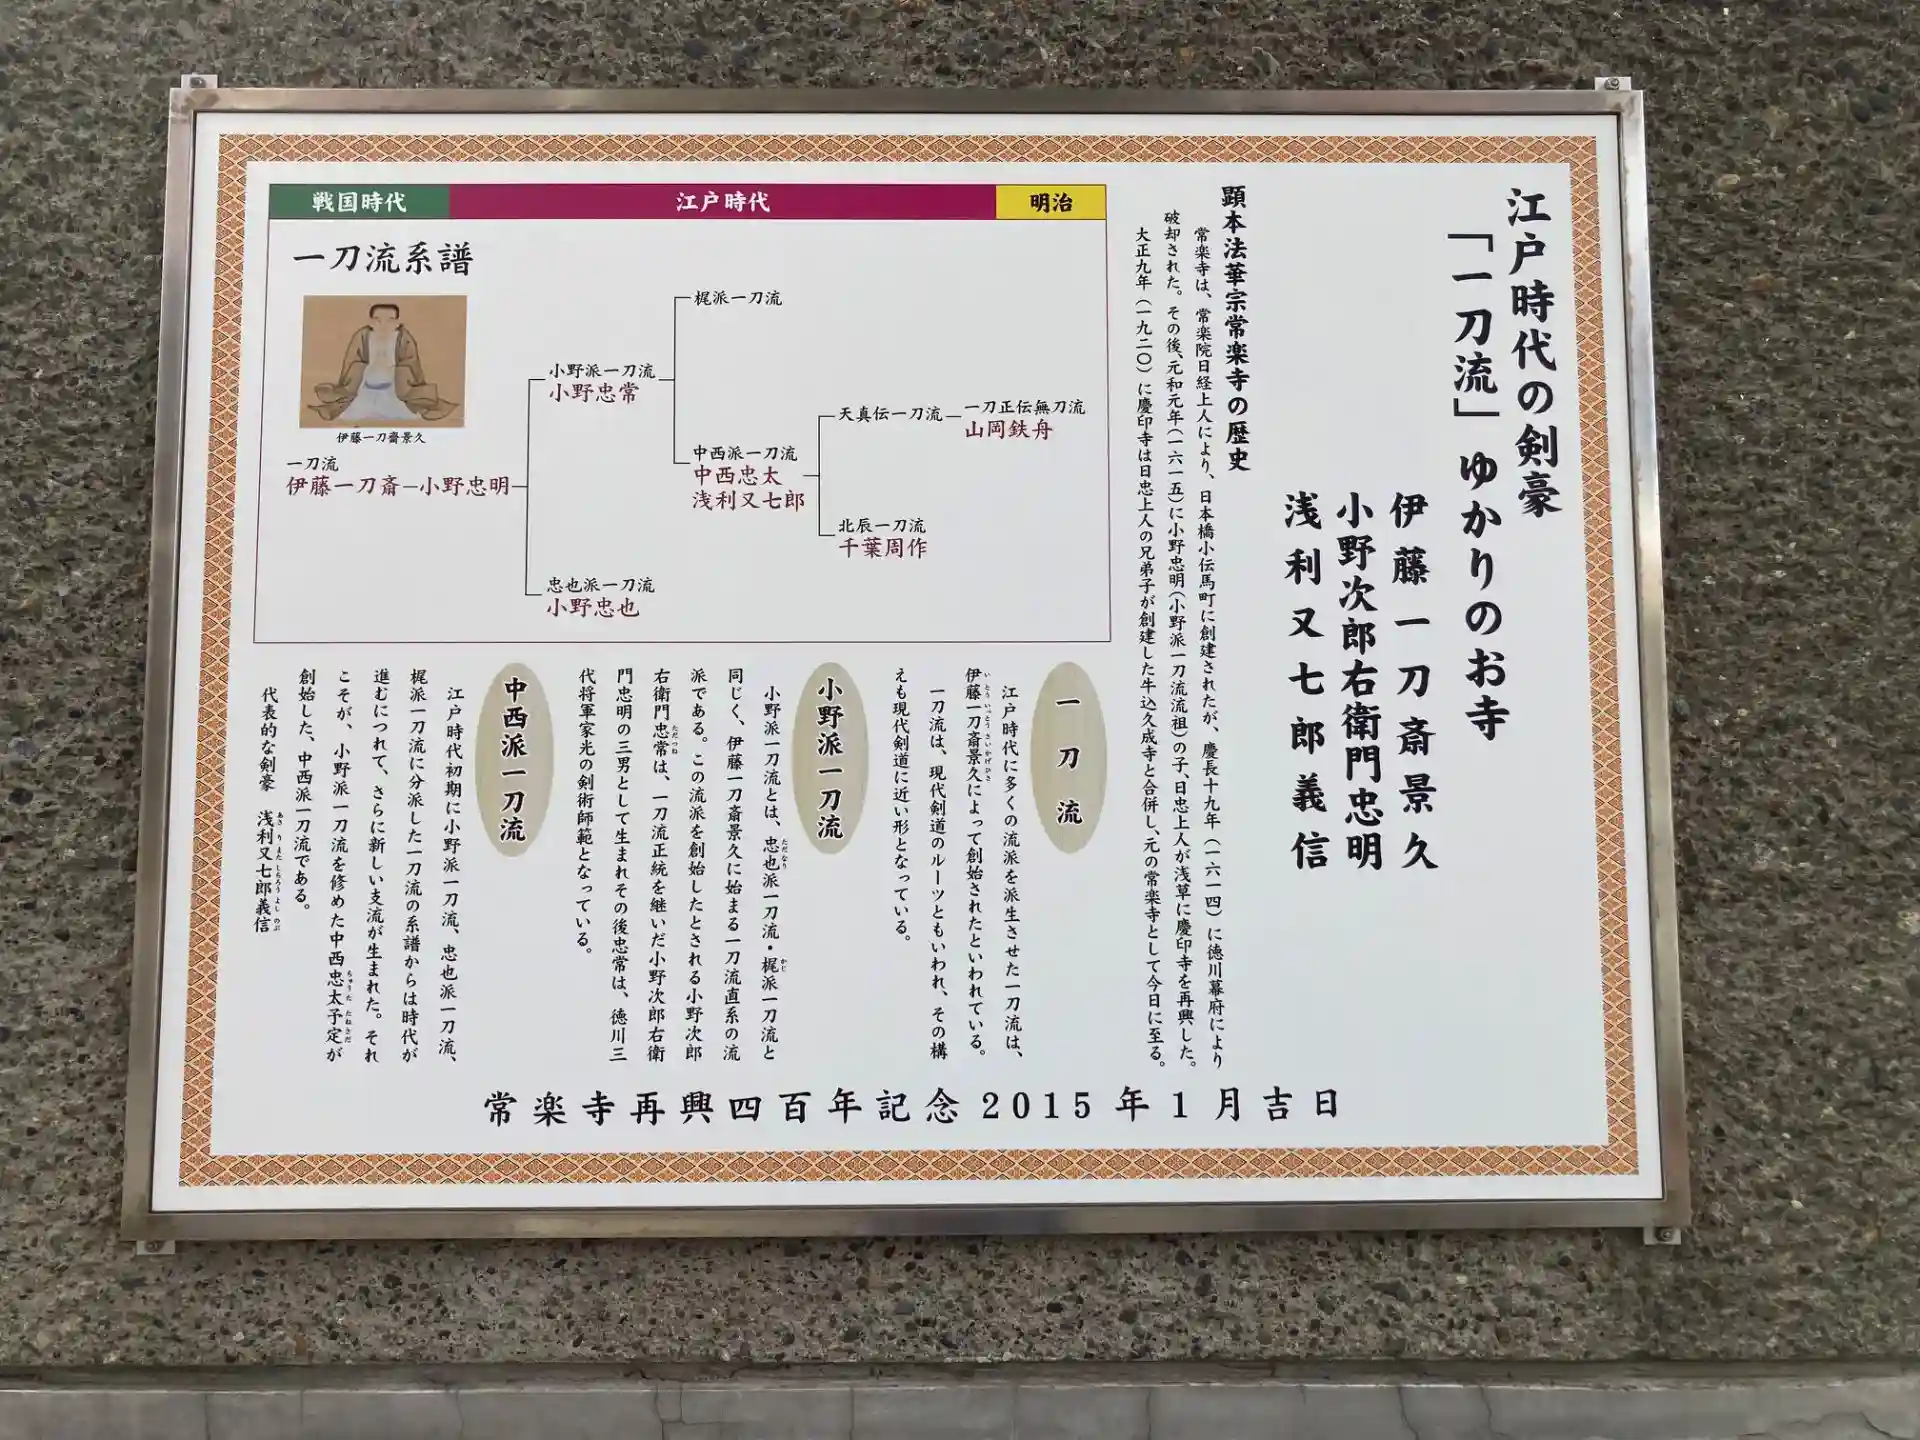 江戸時代の剣豪
「一刀流」ゆかりのお寺
伊藤一刀斎景久
小野次郎右衛門忠明
浅利又七郎義信
顕本法華宗常楽寺の歴史
常楽寺は、常楽院日経上人により、日本橋小伝馬町に創建されたが、慶長十九年(一六一四)に徳川幕府により
破却された。その後、元和元年(一六一五)に小野忠明(小野派一刀流流祖)の子、日忠上人が浅草に慶印寺を再興した。
大正九年(一九二〇)に慶印寺は日忠上人の兄弟子が創建した牛込久成寺と合併し、元の常楽寺として今日に至る。
戦国時代
江戸時代
明治
一刀流系譜
伊藤一刀齋景久
一刀流
伊藤一刀斎―小野忠明
小野派一刀流
小野忠常
忠也派一刀流
小野忠也
梶派一刀流
中西派一刀流
中西忠太
浅利又七郎
天真伝一刀流
北辰一刀流
千葉周作
一刀正伝無刀流
山岡鉄舟
一刀流
江戸時代に多くの流派を派生させた一刀流は、
伊藤一刀斎景久によって創始されたといわれている。
いとういっとうさいかげひさ
一刀流は、現代剣道のルーツともいわれ、その構
えも現代剣道に近い形となっている。
小野派一刀流
小野派一刀流とは、忠也派一刀流・梶派一刀流と
ただなり
かじ
同じく、伊藤一刀斎景久に始まる一刀流直系の流
派である。この流派を創始したとされる小野次郎
右衛門忠常は、一刀流正統を継いだ小野次郎右衛
ただつね
門忠明の三男として生まれその後忠常は、徳川三
代将軍家光の剣術師範となっている。
中西派一刀流
江戸時代初期に小野派一刀流、忠也派一刀流、
梶派一刀流に分派した一刀流の系譜からは時代が
進むにつれて、さらに新しい支流が生まれた。それ
こそが、小野派一刀流を修めた中西忠太子定が
ちゅうた たねさだ
創始した、中西派一刀流である。
代表的な剣豪 浅利又七郎義信
あさりまたしちろうよしのぶ
常楽寺再興四百年記念2015年1月吉日